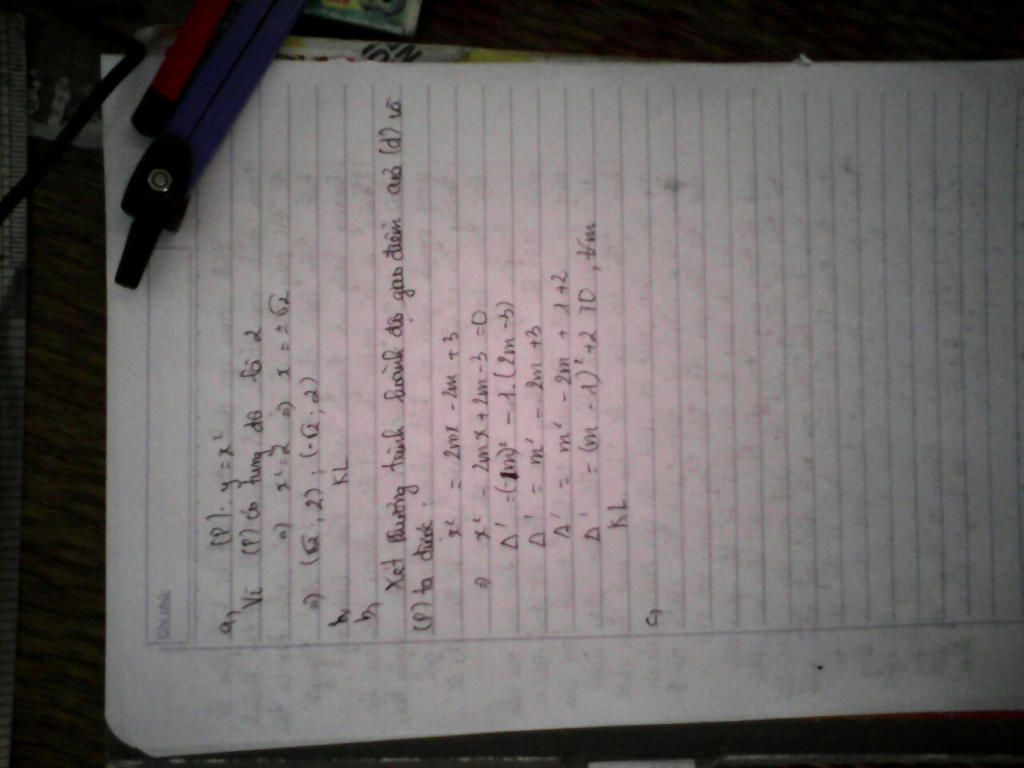 Ghi chú:
a, (P): y = x²
Vì (P) có tung độ là 2
=) x² = 2 =) x = ±√2
=) (√2 ; 2) ; (-√2 ; 2)
b, KL
b, Xét phương trình hoành độ giao điểm của (d) và
(P) ta được :
x² = 2mx - 2m + 3
=) x² - 2mx + 2m - 3 = 0
Δ' = (-m)² - 1. (2m - 3)
Δ' = m² - 2m + 3
Δ' = m² - 2m + 1 + 2
Δ' = (m - 1)² + 2 > 0 , ∀m
KL
c,